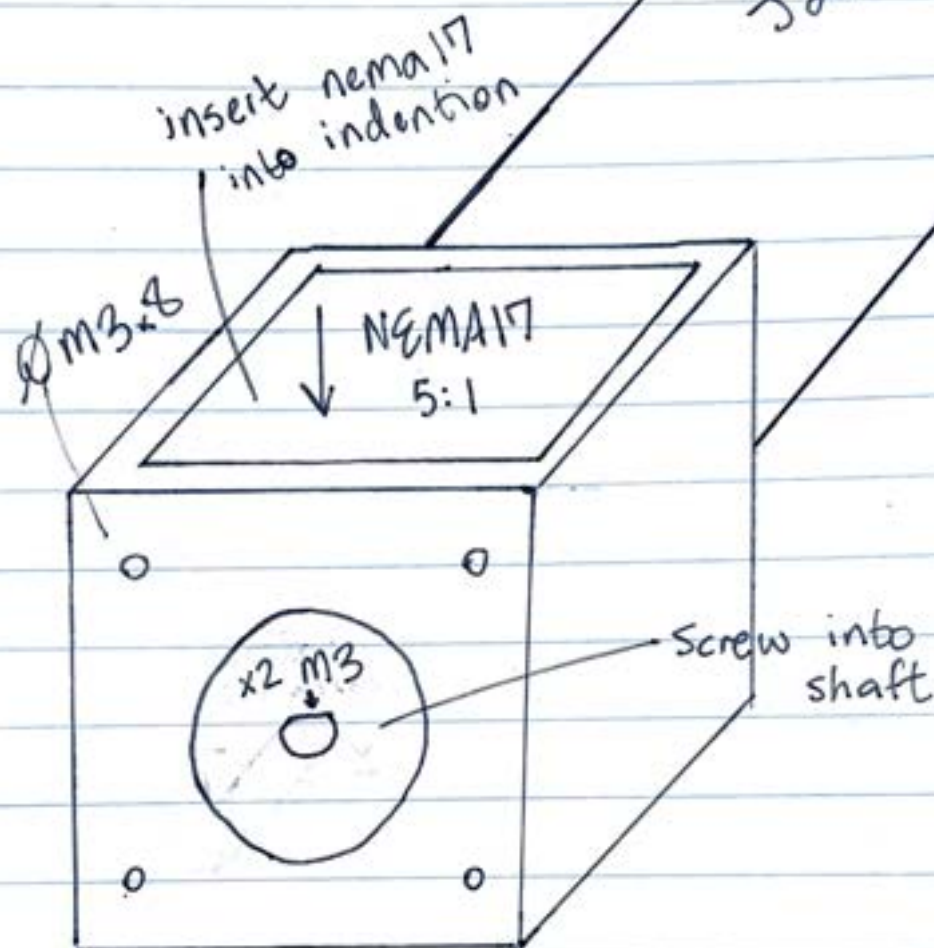 insert nema17
into indention
ØM3x8
NEMA17
5:1
x2 M3
Screw into
shaft